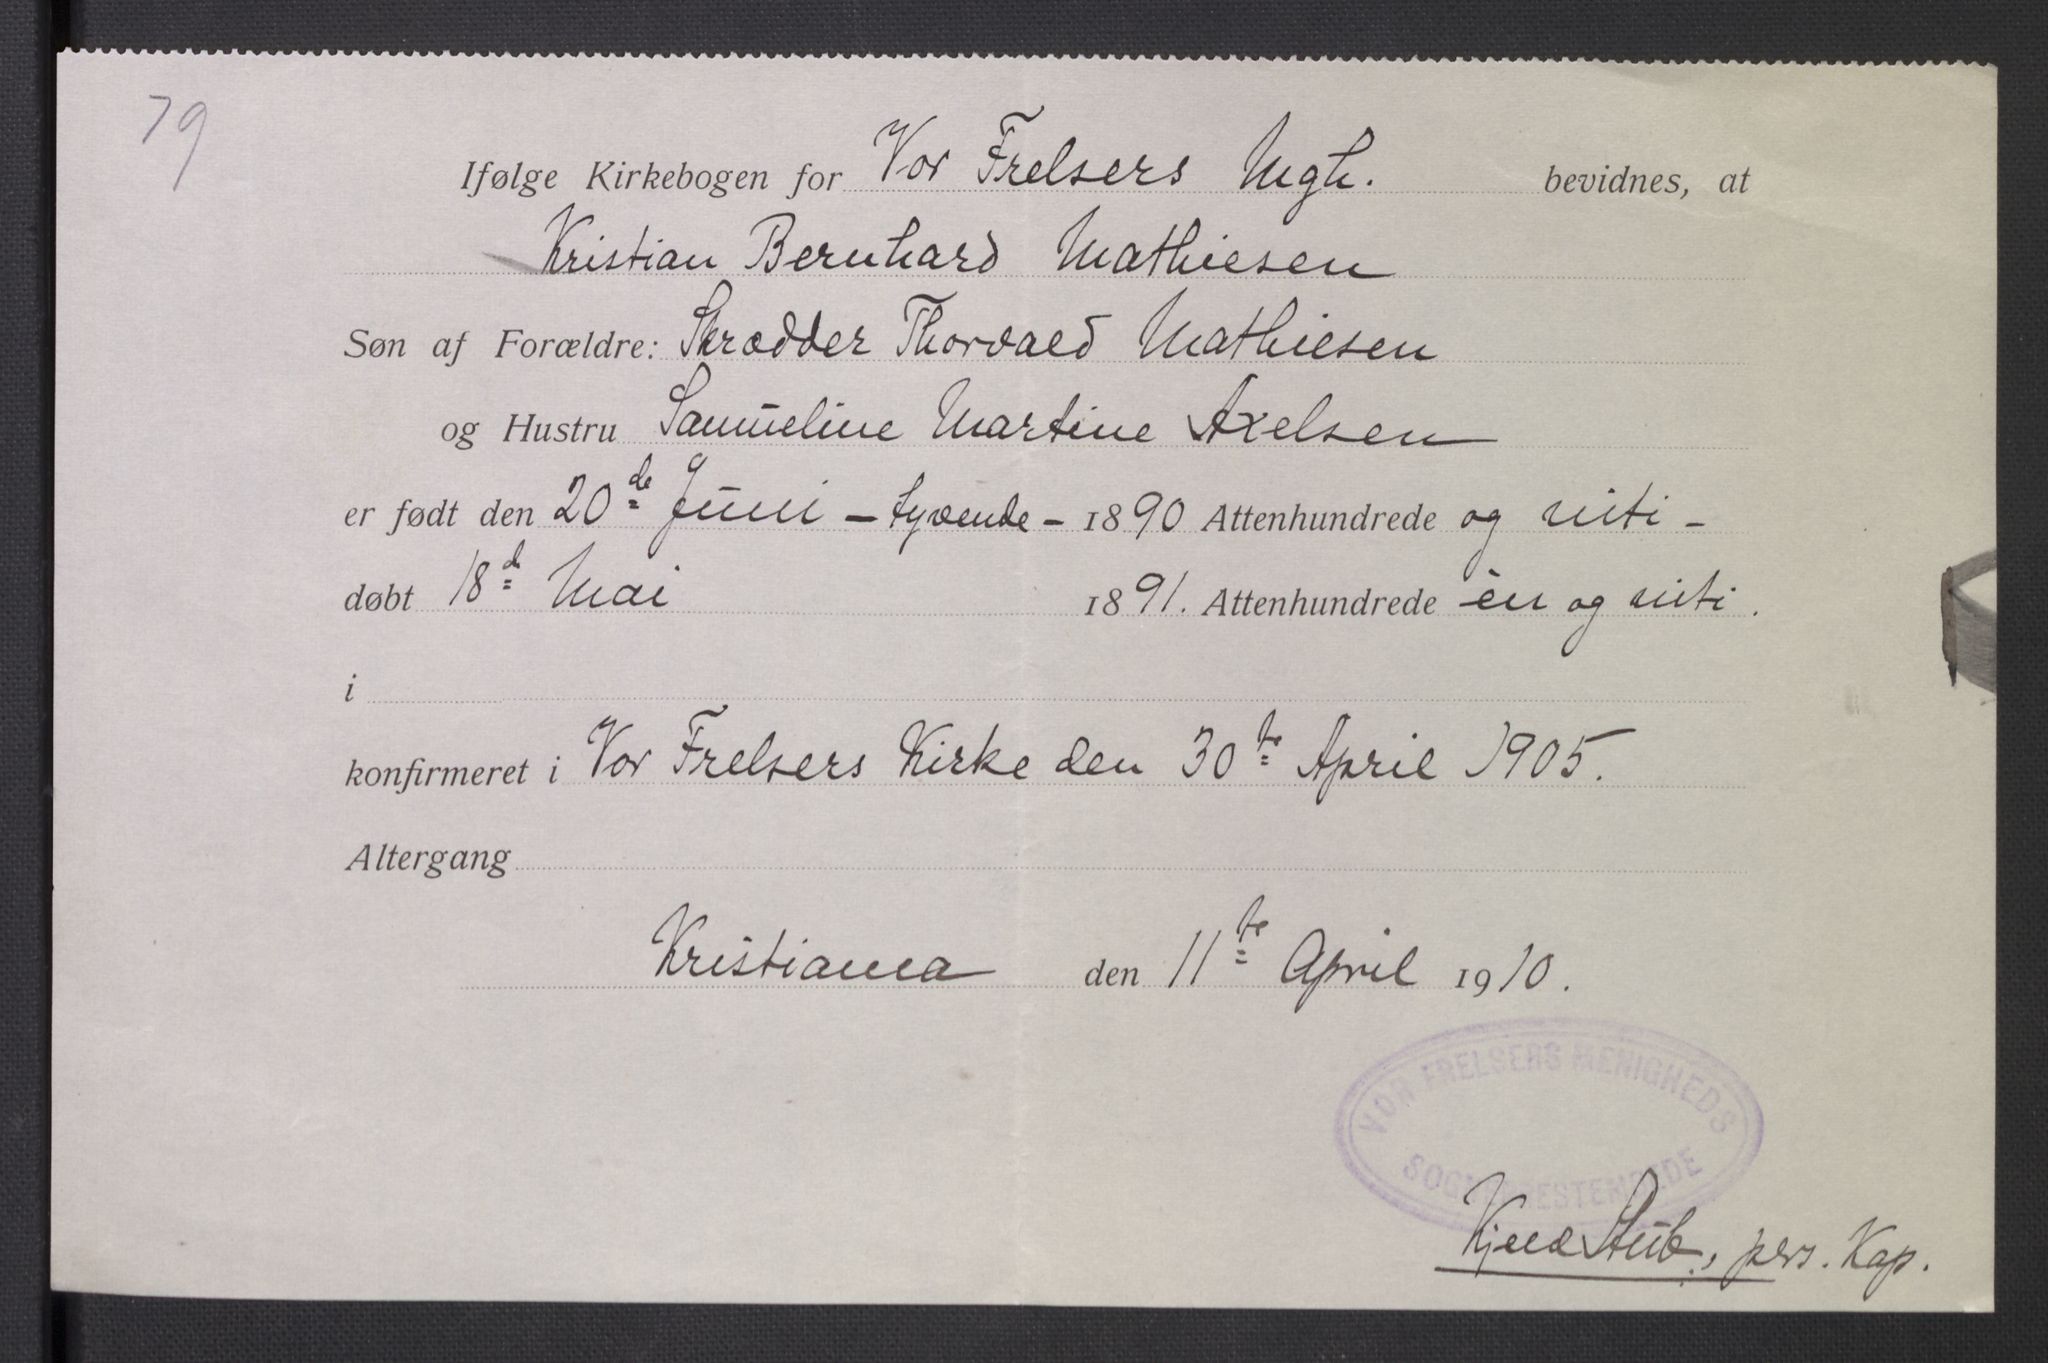 79
Ifølge Kirkebogen for Vor Frelsers Mgh. bevidnes, at
Kristian Bernhard Mathiesen
Søn af Forældre: Skrædder Thorvald Mathiesen
og Hustru Samueline Martine Axelsen
er født den 20de Juni - tyvende - 1890 Attenhundrede og niti -
døbt 18d Mai 1891. Attenhundrede èn og niti.
i
konfirmeret i Vor Frelsers Kirke den 30te April 1905.
Altergang
Kristiania den 11te April 1910.
VOR FRELSERS MENIGHEDS
SOGNEPRESTEMBEDE
Kjeld Stub, pers. Kap.